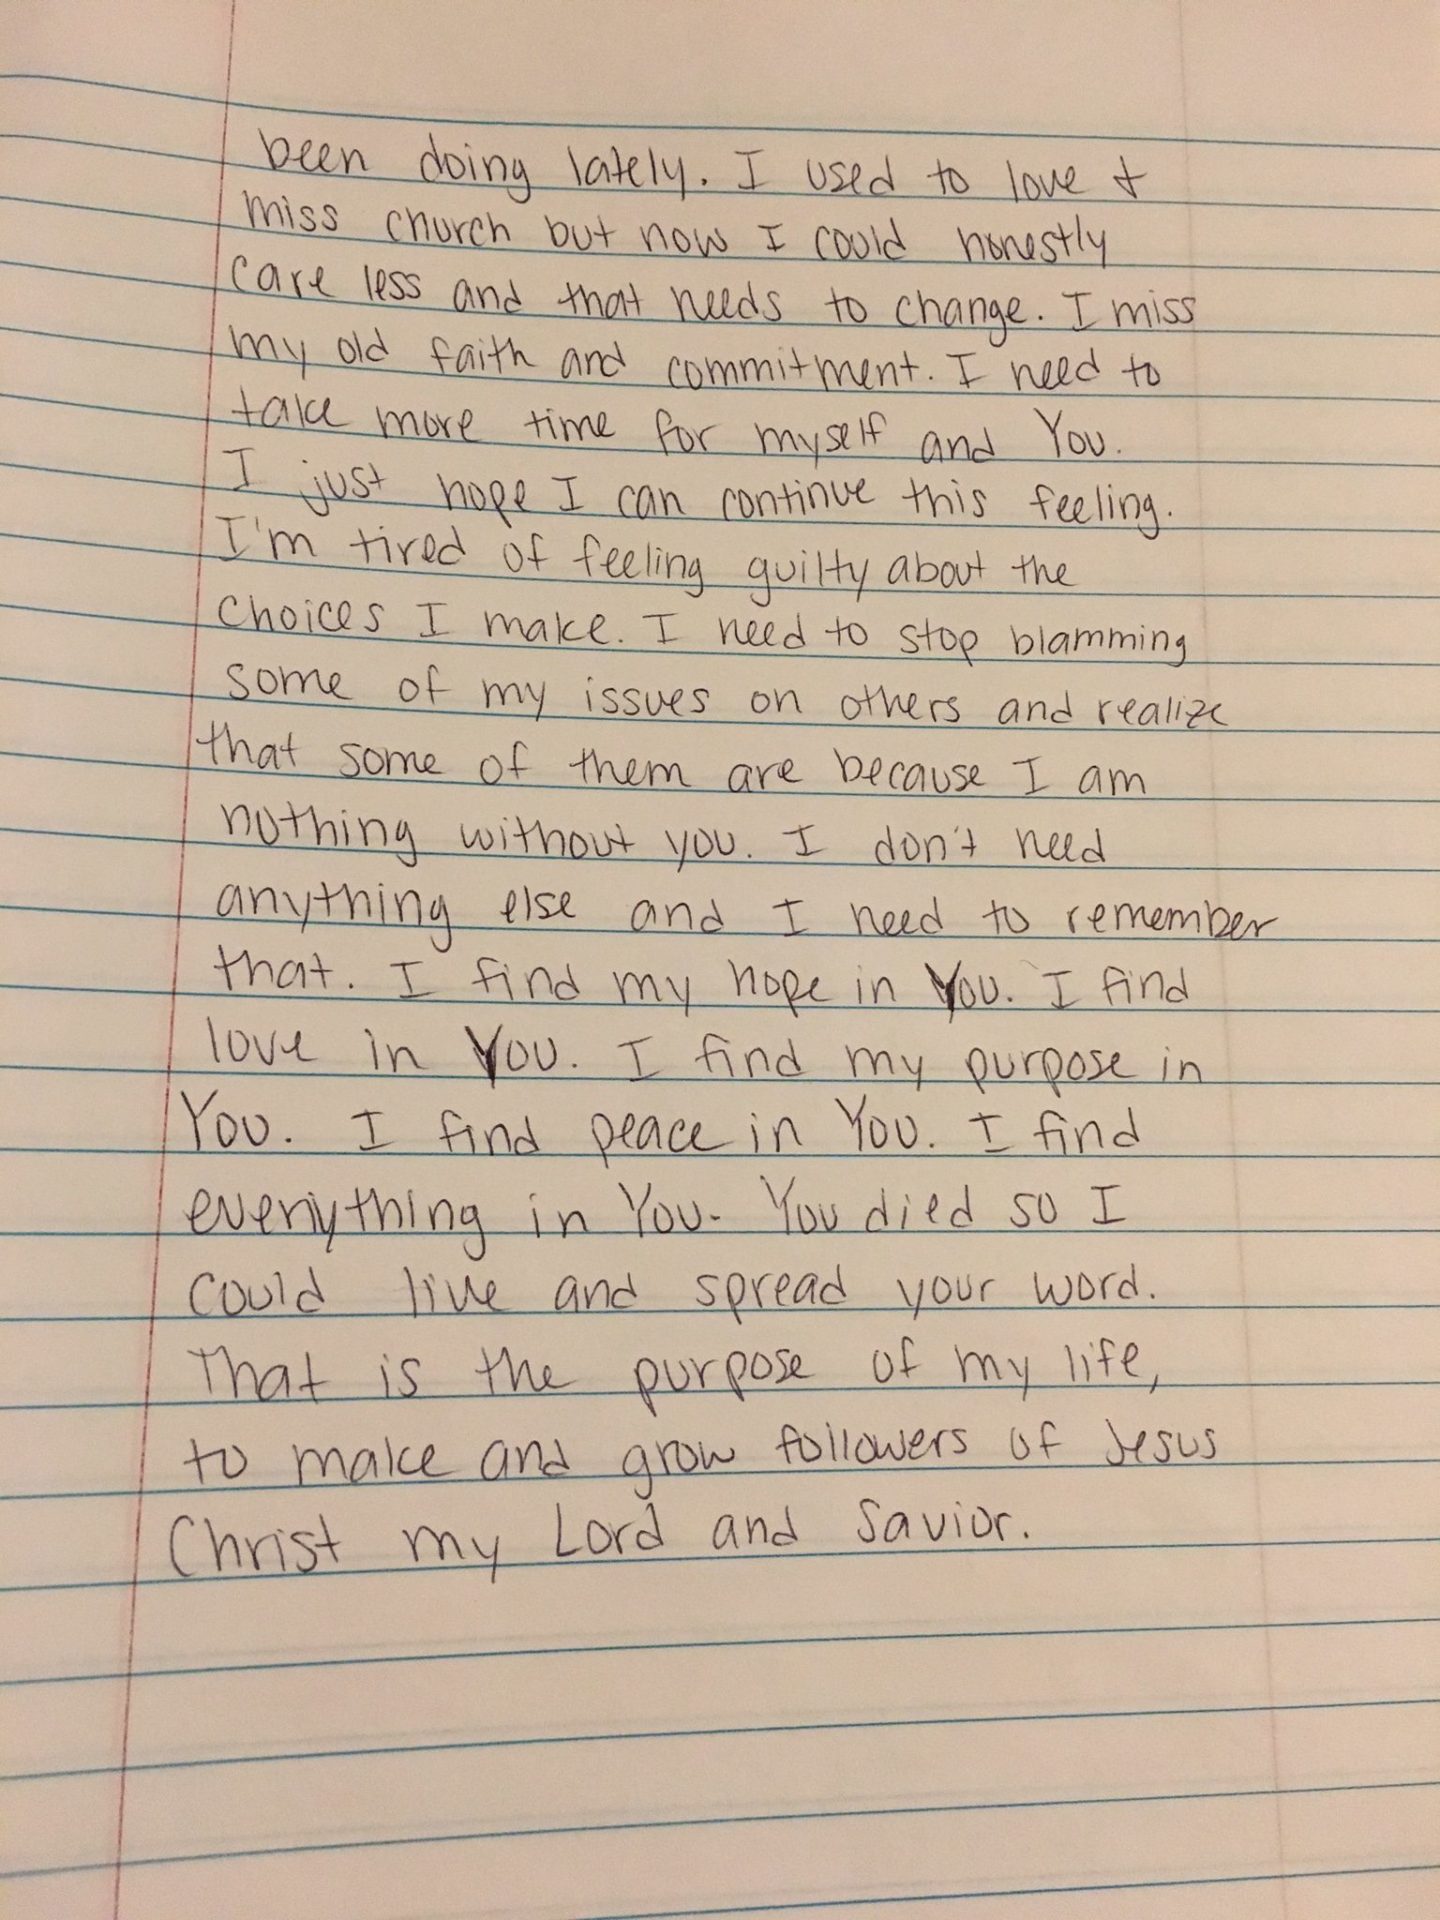 been doing lately. I used to love &
miss church but now I could honestly
care less and that needs to change. I miss
my old faith and commitment. I need to
take more time for myself and You.
I just hope I can continue this feeling.
I'm tired of feeling guilty about the
choices I make. I need to stop blamming
some of my issues on others and realize
that some of them are because I am
nothing without you. I don't need
anything else and I need to remember
that. I find my hope in You. I find
love in You. I find my purpose in
You. I find peace in You. I find
everything in You. You died so I
could live and spread your word.
That is the purpose of my life,
to make and grow followers of Jesus
Christ my Lord and Savior.